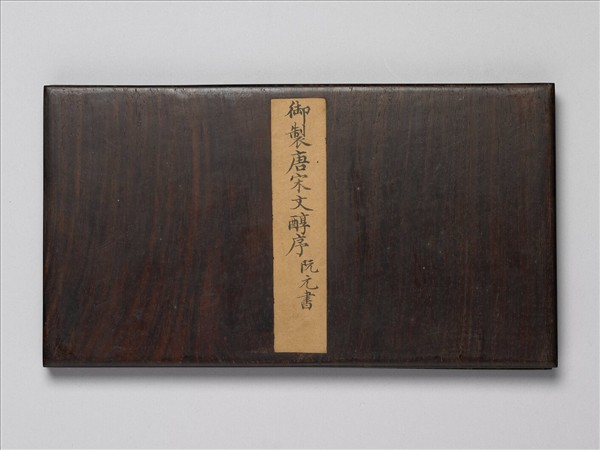 御製唐宋文醇序
阮元書